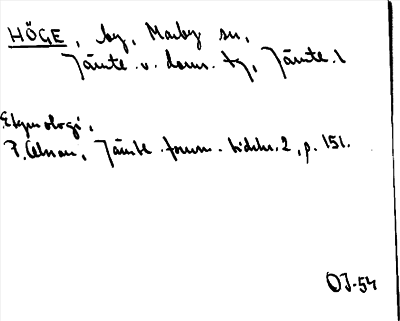 HÖGE, by, Marby sn,
Jämte. v. doms. tg, Jämte. l
Etymologi,
P. Olsson, Jämtl. forns. tidskr. 2, p. 151.
OJ-54